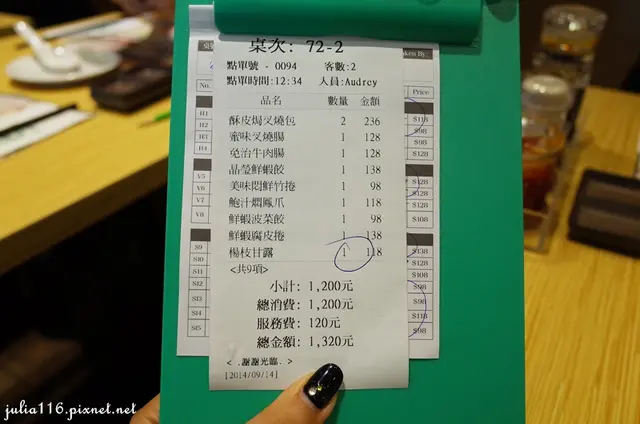 桌次: 72-2
點單號 - 0094 客數:2
點單時間:12:34 人員:Audrey
品名 數量 金額
酥皮焗叉燒包 2 236
蜜味叉燒腸 1 128
免治牛肉腸 1 128
晶瑩鮮蝦餃 1 138
美味悶鮮竹捲 1 98
鮑汁燜鳳爪 1 118
鮮蝦菠菜餃 1 98
鮮蝦腐皮捲 1 138
楊枝甘露 1 118
<共9項>
小計: 1,200元
總消費: 1,200元
服務費: 120元
總金額: 1,320元
< .謝謝光臨. >
[2014/09/14]
No.
H1
H2
H3
H4
V5
V6
V7
V8
S9
S10
S11
S12
S13
S14
S15
Taken By:
Price
$118
$98
$98
$128
$128
$128
$128
$108
$138
$128
$108
$98
$98
$118
$98
julia116.pixnet.net